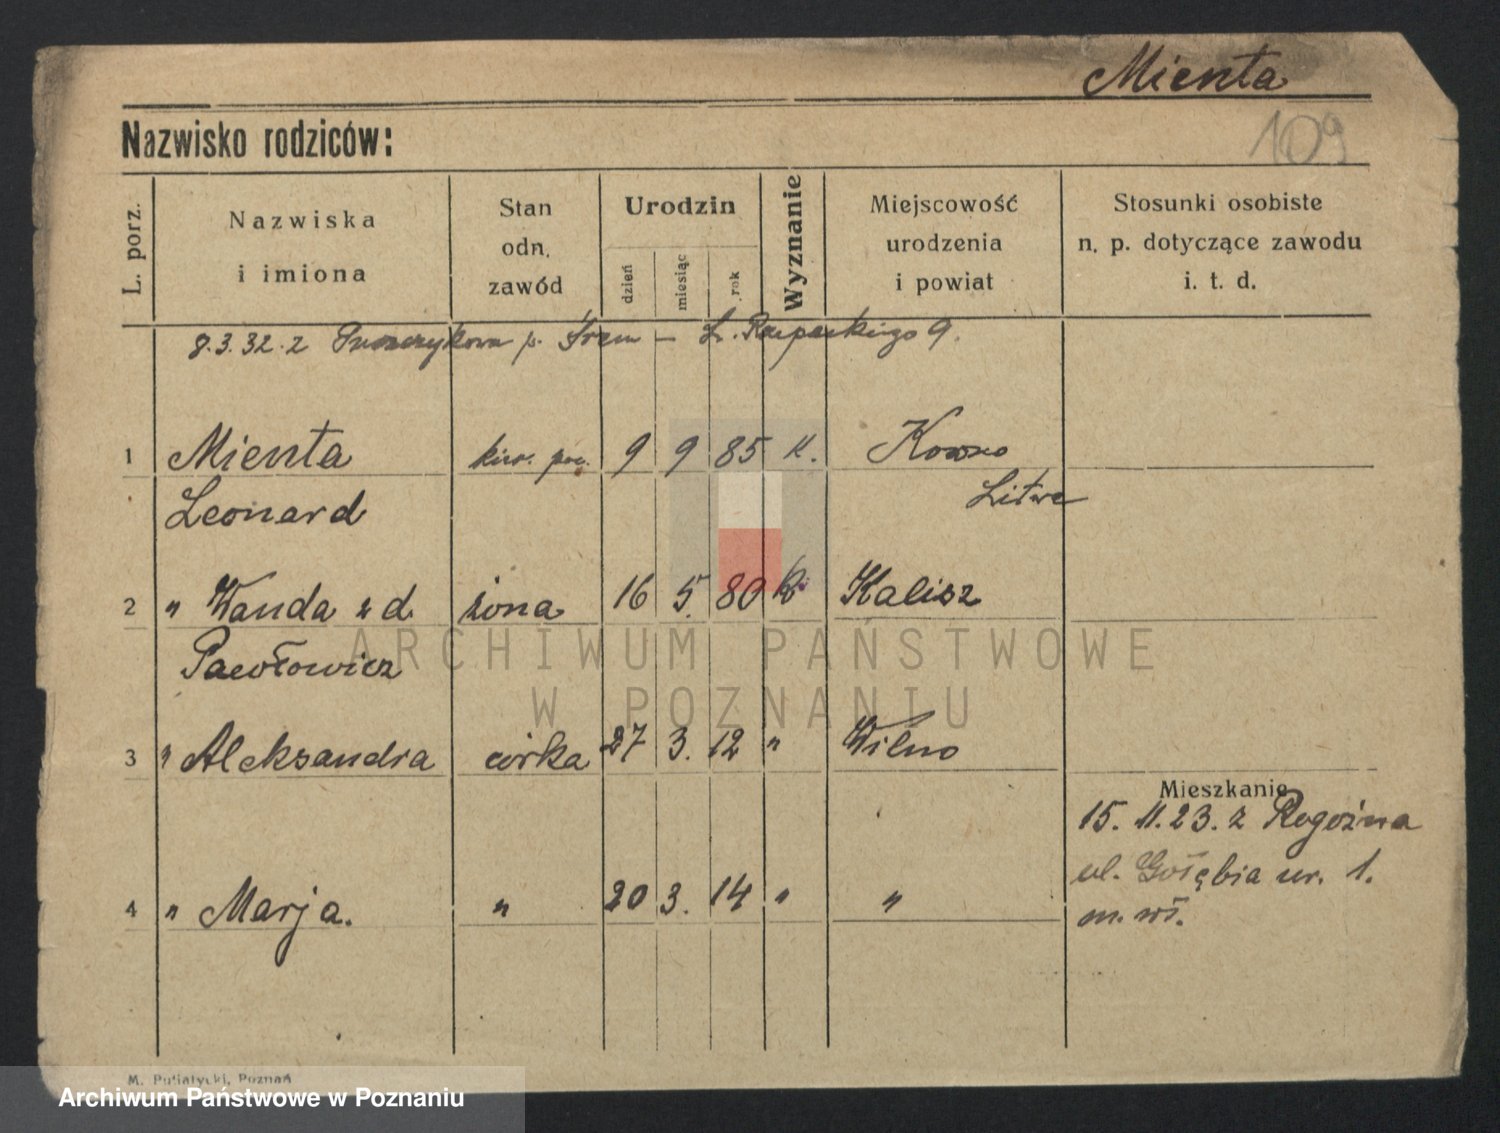 Mienta
109
Nazwisko rodziców:
L. porz.
Nazwiska
i imiona
Stan
odn.
zawód
Urodzin
dzień
miesiąc
rok
Wyznanie
Miejscowość
urodzenia
i powiat
Stosunki osobiste
n. p. dotyczące zawodu
i. t. d.
8.3.32. z p. Śrem – 9.
1 Mienta 9 9 85 K. Kowno
Leonard Litwa
2 " Wanda z d. żona 16 5. 80 K. Kalisz
Pawłowicz
ARCHIWUM PAŃSTWOWE
W POZNANIU
3 " Aleksandra córka 27 3. 12 " Wilno
Mieszkanie
15. 11. 23. z Rogoźna
ul. Gołębia nr. 1.
4 " Marja. " 20 3. 14 " "
m. wł.
M. Putiatycki, Poznań
Archiwum Państwowe w Poznaniu